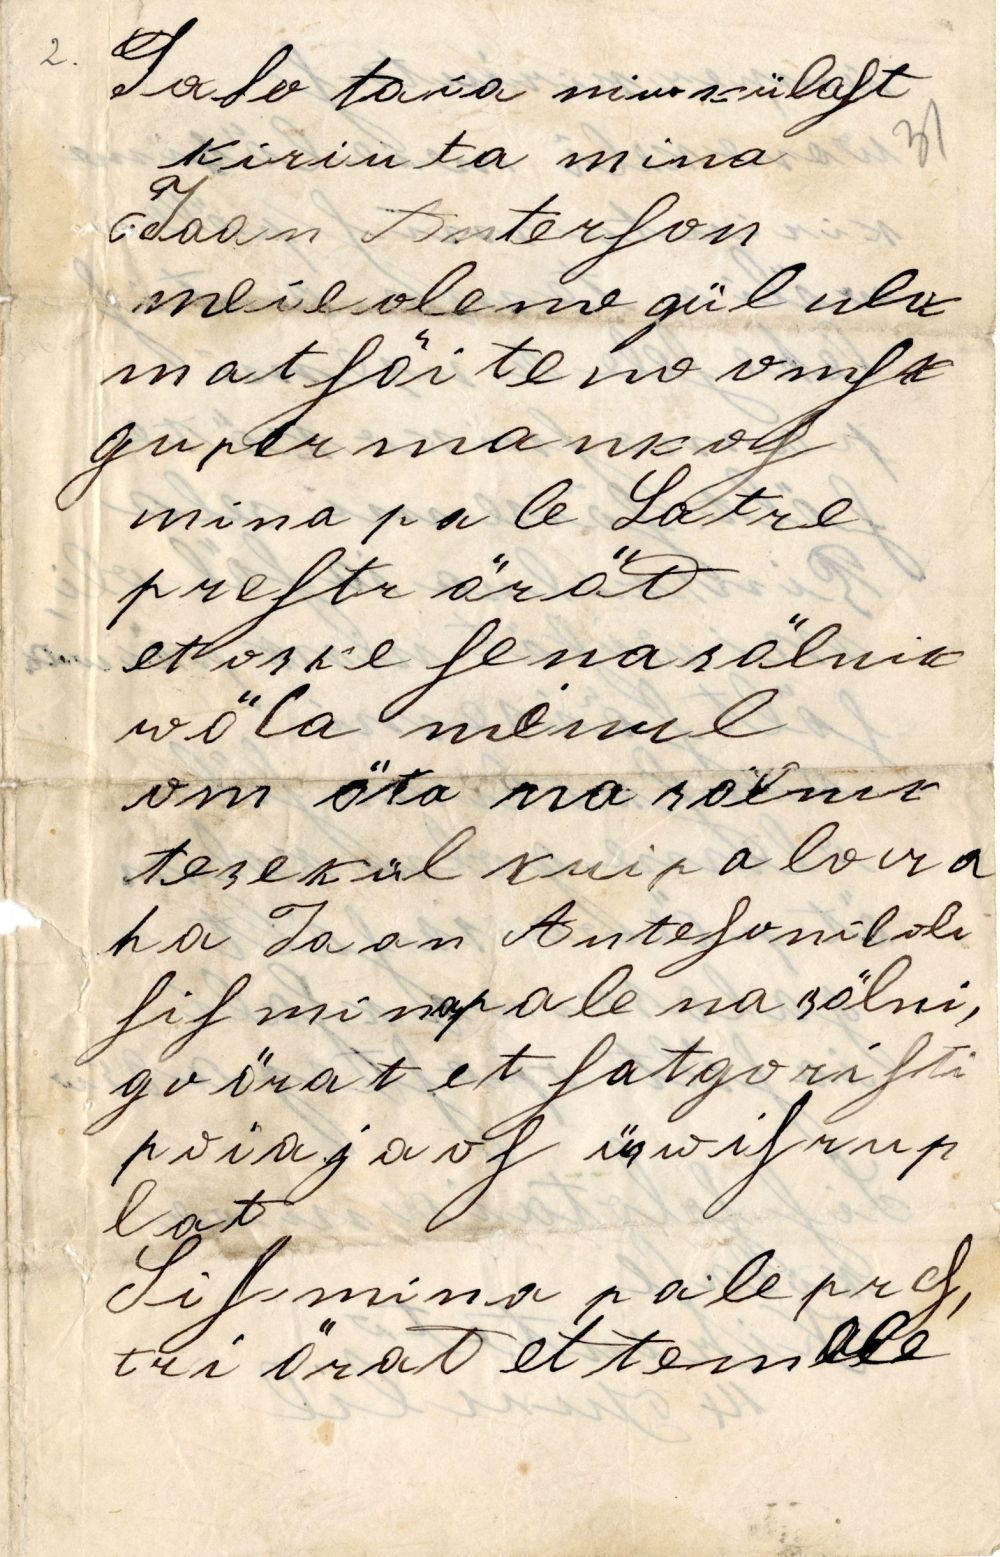 2.
Solo taia niu külast
31
kiriuta mina
Jaan Anterson
meie oleme gül ulu
mat söiteno omsk
gupermankos
mina pa le Satre
prestr ärät
et oske se nasälnik
wöla minul
om öta nasälnik
tesekül kui palo ra
ha Jaan Antesonil oli
sis mina pale nasälni,
go ärat et satgoristi
poiajaos üqwis rup
lat
Sis mina pale pres,
tri ärat et temale